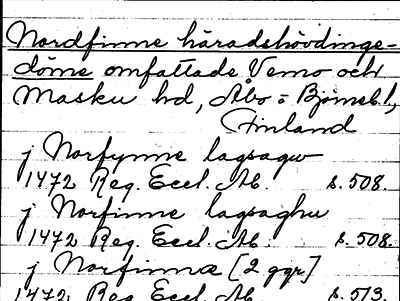 Nordfinne häradshövdinge-
döme omfattade Vemo och
Masku hd, Åbo- o Björneb. l,
Finland
j Norfynne lagsagw
1472 Reg. Eccl. Ab. s. 508.
j Norfinne lagsaghu
1472 Reg. Eccl. Ab. s. 508.
j Norfinnæ [2 ggr]
1472 Reg. Eccl. Ab. s. 513.